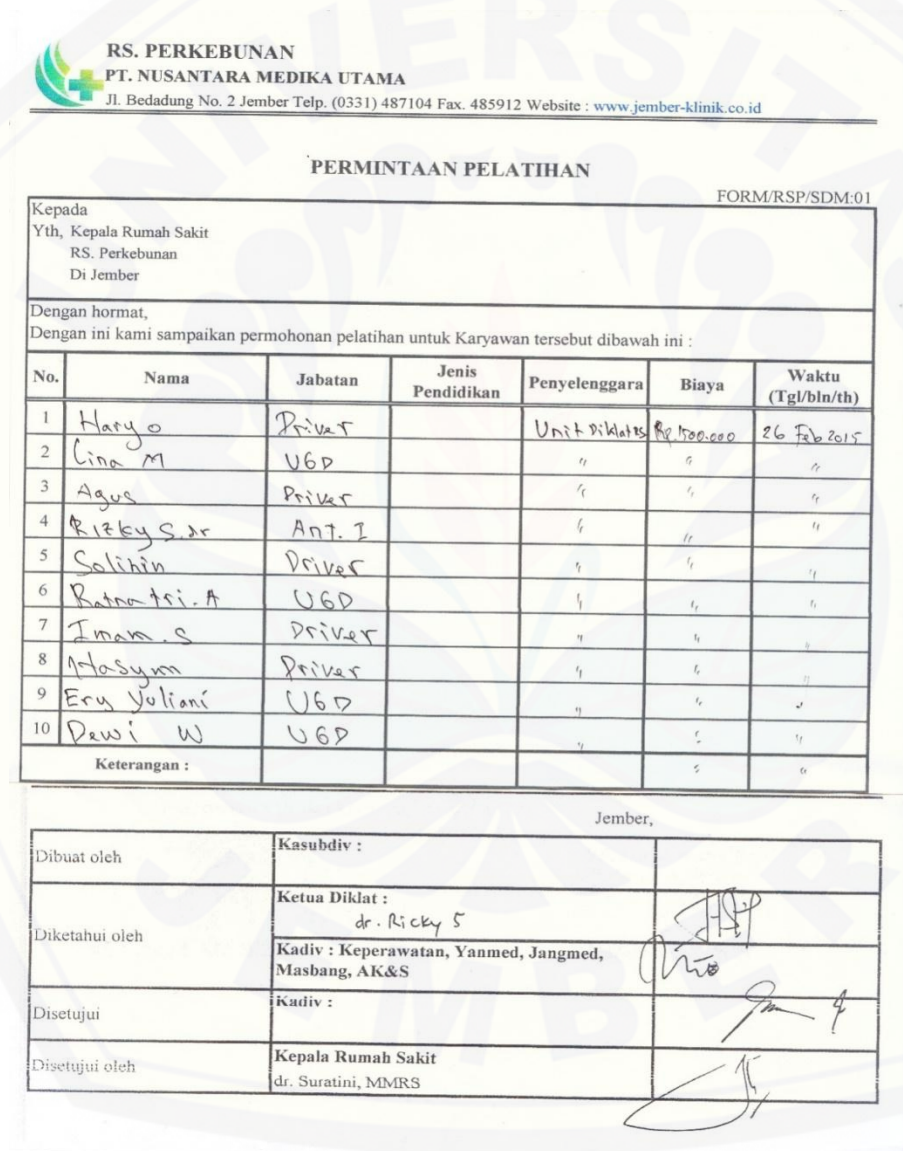 RS. PERKEBUNAN
PT. NUSANTARA MEDIKA UTAMA
Jl. Bedadung No. 2 Jember Telp. (0331) 487104 Fax. 485912 Website : www.jember-klinik.co.id
PERMINTAAN PELATIHAN
FORM/RSP/SDM:01
Kepada
Yth, Kepala Rumah Sakit
RS. Perkebunan
Di Jember
Dengan hormat,
Dengan ini kami sampaikan permohonan pelatihan untuk Karyawan tersebut dibawah ini :
No. Nama Jabatan Jenis Pendidikan Penyelenggara Biaya Waktu (Tgl/bln/th)
1 Haryo Driver Unit Diklat RS Rp. 1500.000 26 Feb 2015
2 Cina M UGD " " "
3 Agus Driver " " "
4 Rizky S.dr Ant. I " " "
5 Solihin Driver " " "
6 Ratna tri. A UGD " " "
7 Imam. S Driver " " "
8 Hasym Driver " " "
9 Ery Yuliani UGD " " "
10 Dewi W UGD " " "
Keterangan : " "
Jember,
Dibuat oleh Kasubdiv :
Diketahui oleh Ketua Diklat :
dr. Ricky S
Kadiv : Keperawatan, Yanmed, Jangmed,
Masbang, AK&S
Disetujui Kadiv :
Disetujui oleh Kepala Rumah Sakit
dr. Suratini, MMRS
UNIVERSITAS
JEMBER